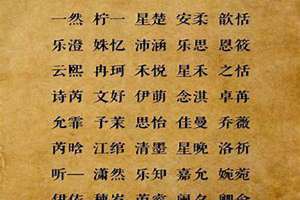 一然 柠一 星楚 安柔 歆恬
乐澄 姝忆 沛涵 乐思 恩筱
云熙 冉珂 禾悦 星禾 之恬
诗芮 文妤 伊萌 念淇 卓苒
允霏 子茉 思怡 佳曼 乔薇
芮晗 江绾 清墨 星晚 洛祈
听一 潇然 乐知 嘉允 婉菀